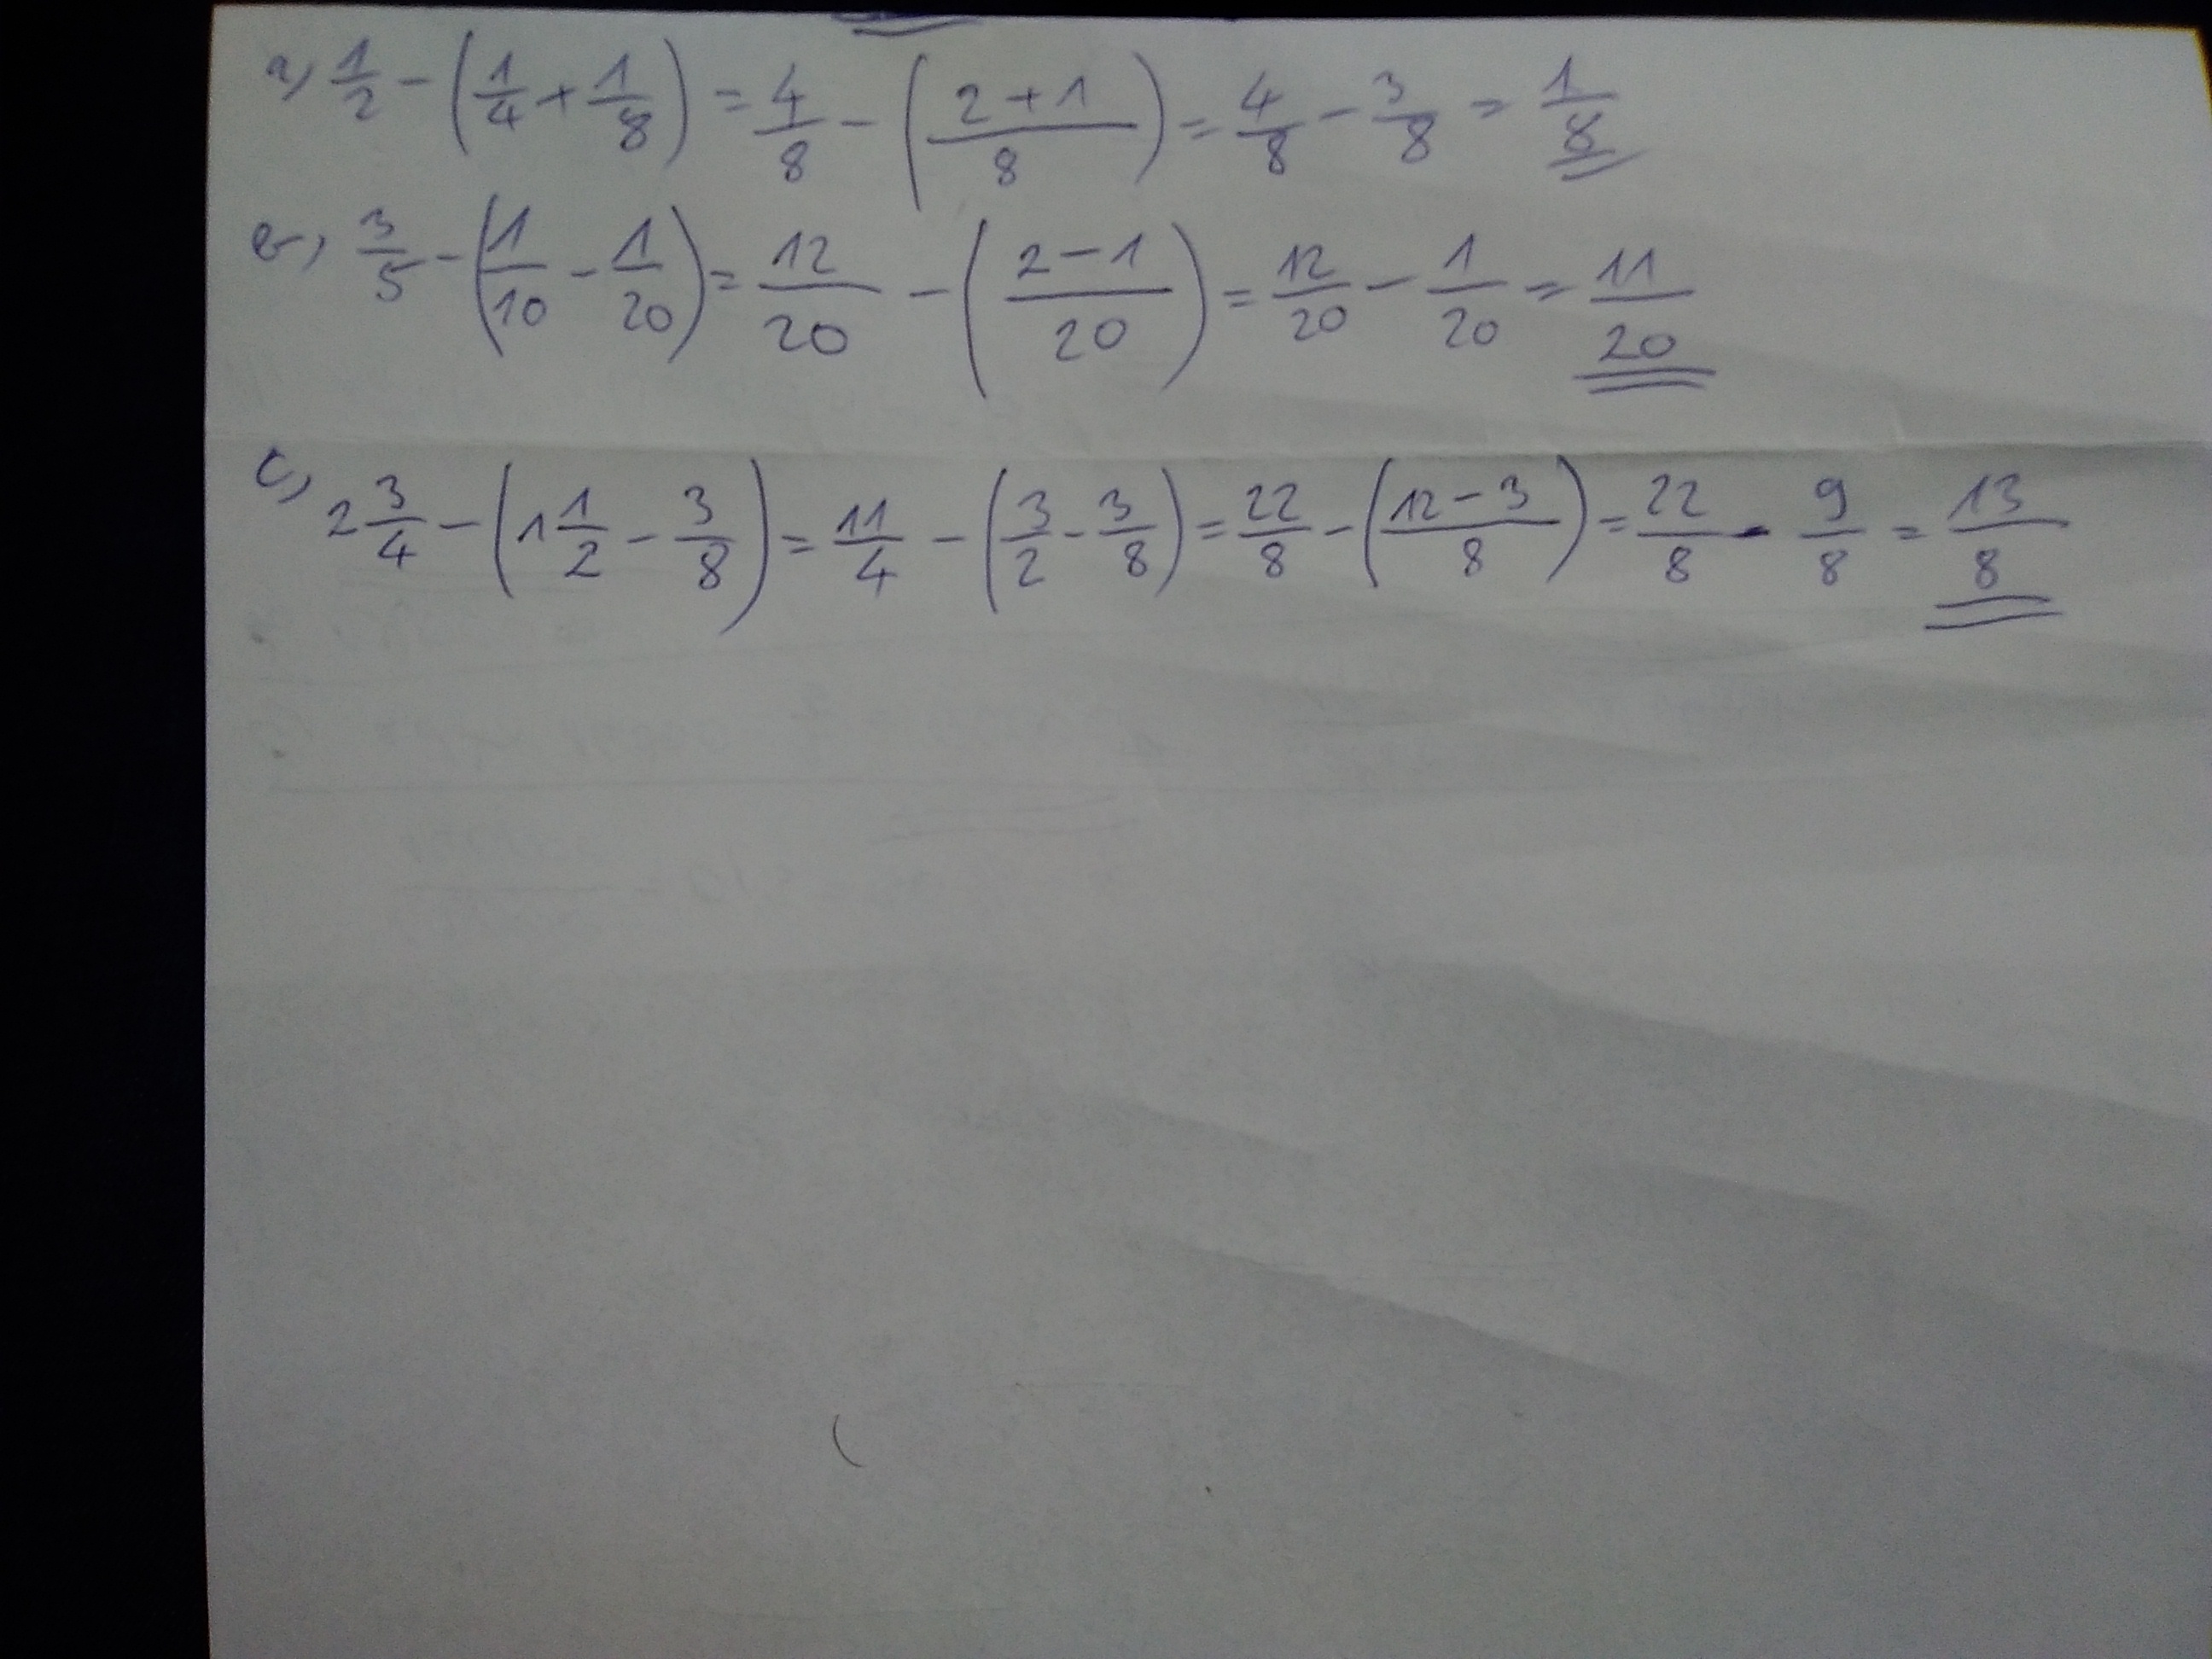 a) 1/2 - (1/4 + 1/8) = 4/8 - ((2+1)/8) = 4/8 - 3/8 = 1/8
b) 3/5 - (1/10 - 1/20) = 12/20 - ((2-1)/20) = 12/20 - 1/20 = 11/20
c) 2 3/4 - (1 1/2 - 3/8) = 11/4 - (3/2 - 3/8) = 22/8 - ((12-3)/8) = 22/8 - 9/8 = 13/8